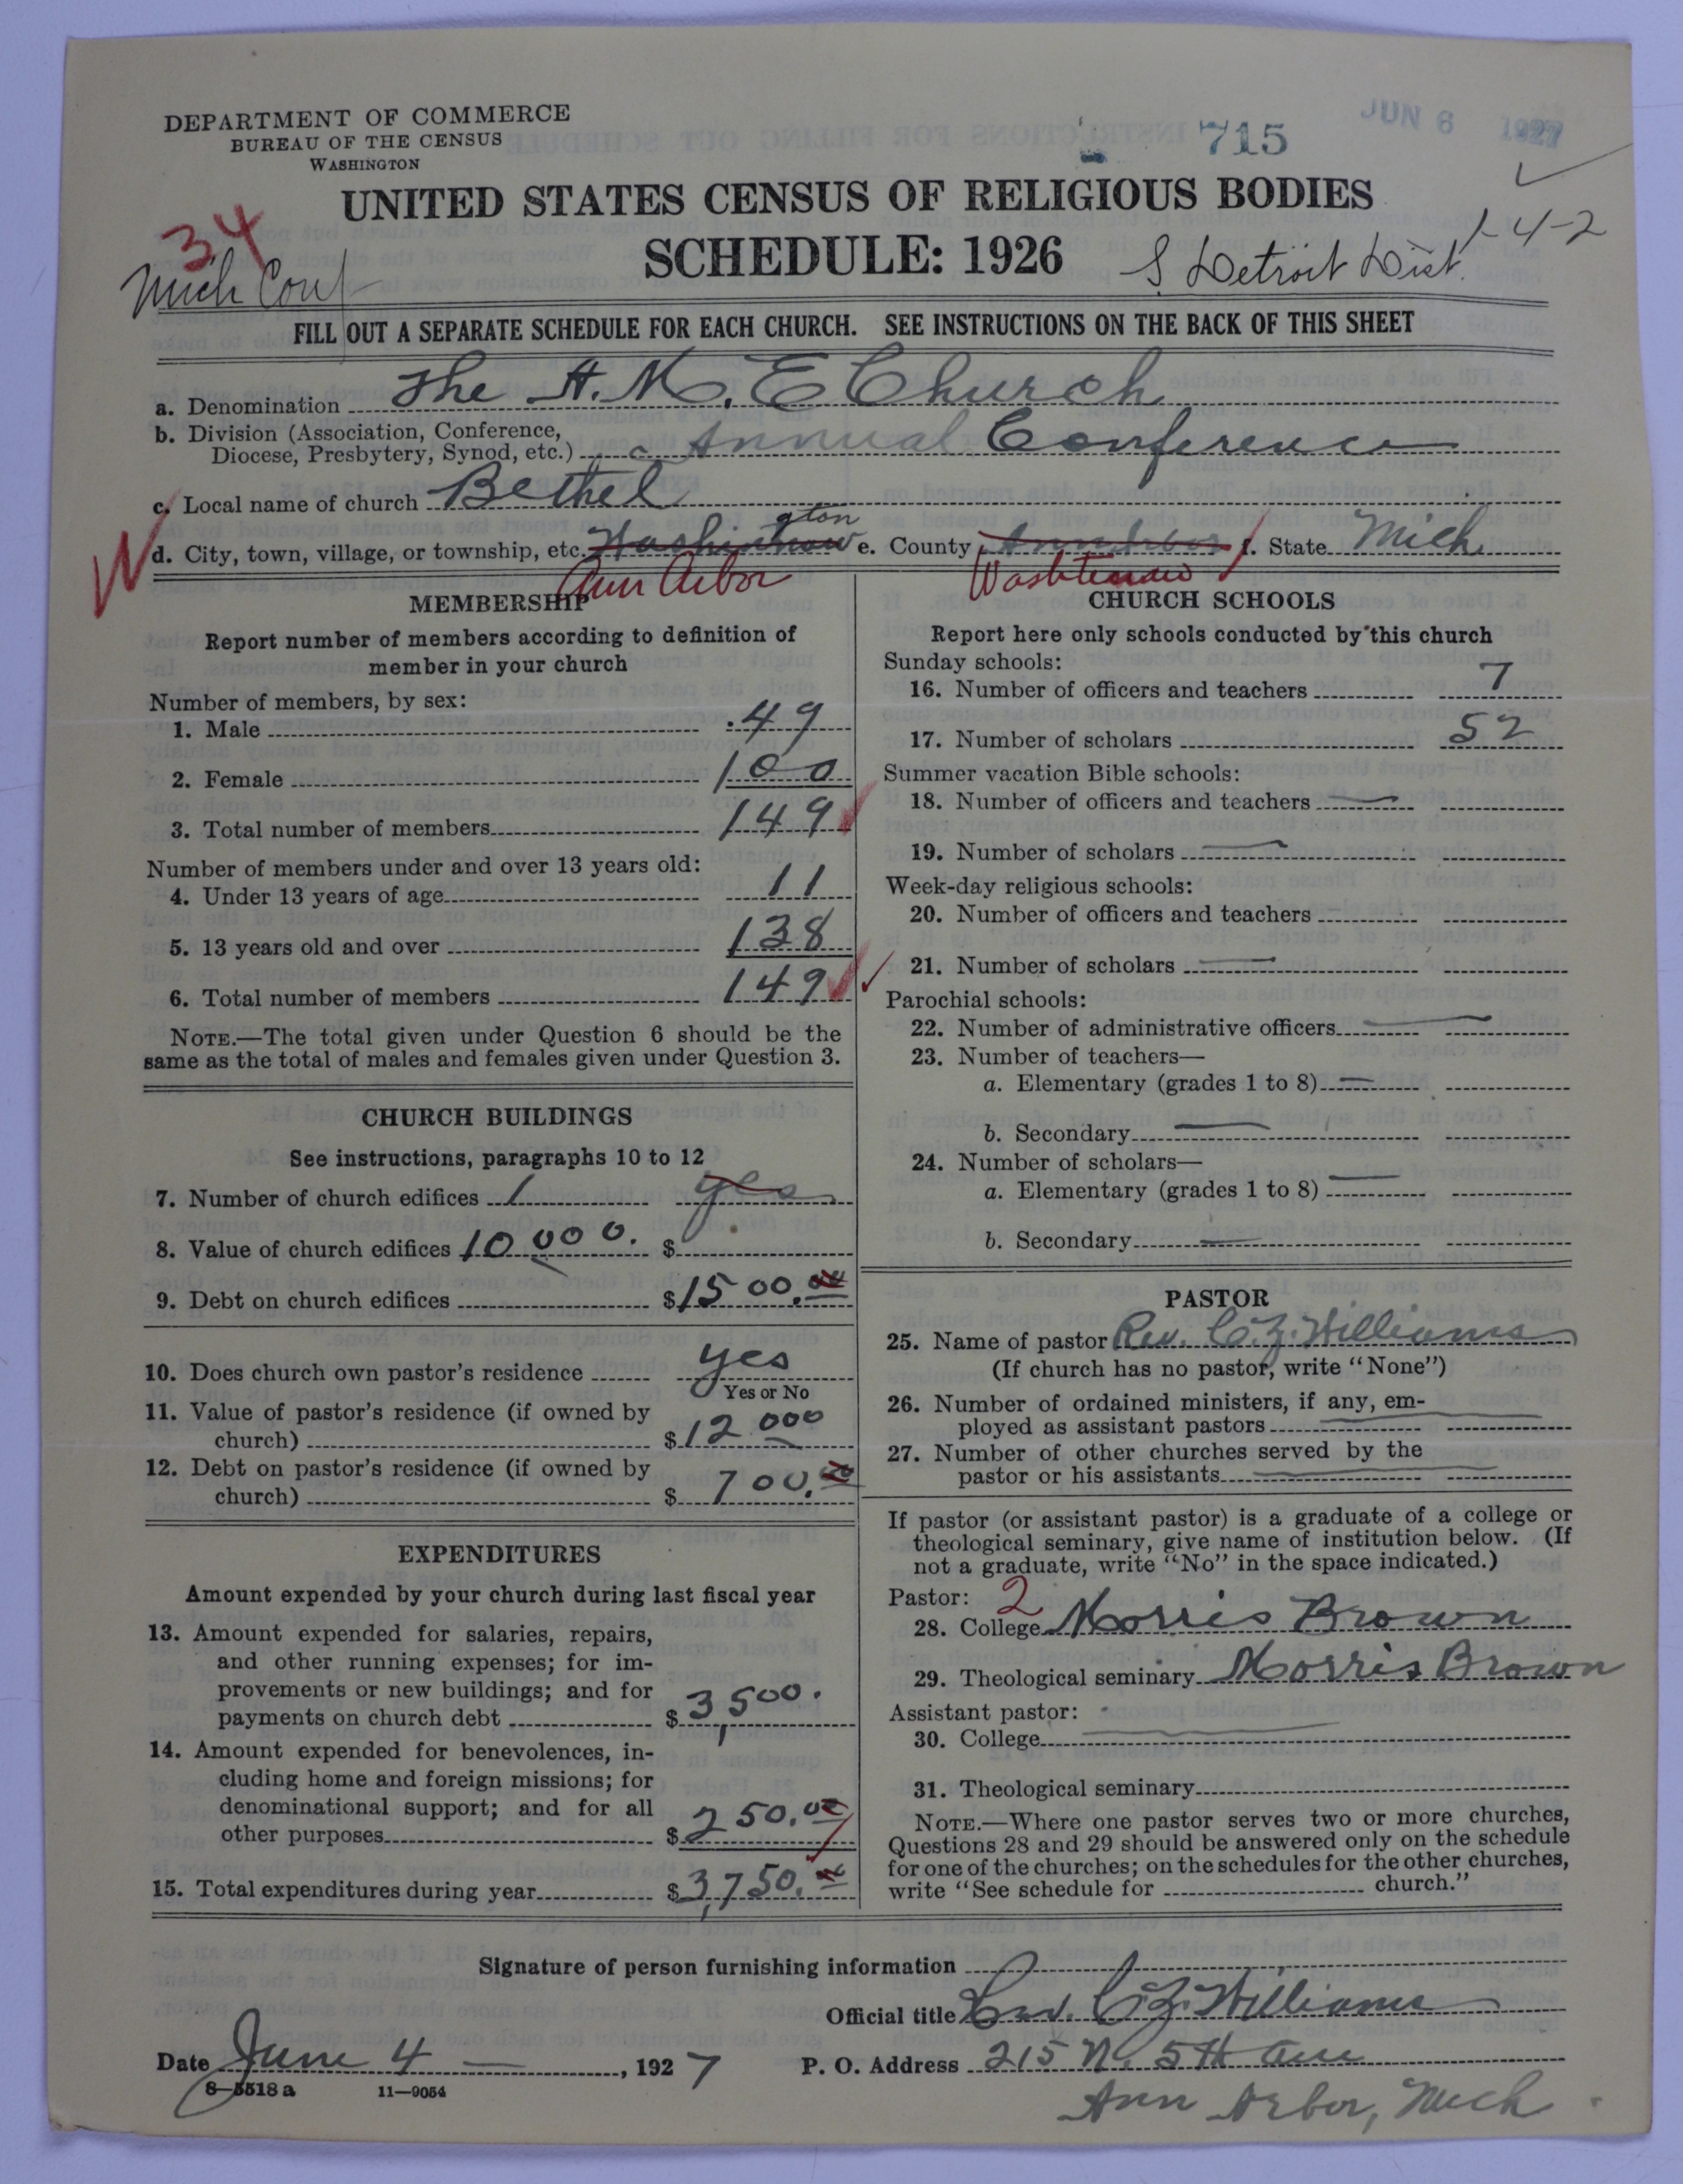 DEPARTMENT OF COMMERCE
BUREAU OF THE CENSUS
WASHINGTON
715
JUN 6 1927
UNITED STATES CENSUS OF RELIGIOUS BODIES
34
SCHEDULE: 1926
1-4-2
Mich Conf
S Detroit Dist.
FILL OUT A SEPARATE SCHEDULE FOR EACH CHURCH. SEE INSTRUCTIONS ON THE BACK OF THIS SHEET
a. Denomination The A. M. E Church
b. Division (Association, Conference,
Diocese, Presbytery, Synod, etc.) Annual Conference
c. Local name of church Bethel
d. City, town, village, or township, etc. Ann Arbor e. County Ann Arbor Washtenaw f. State Mich
MEMBERSHIP
Report number of members according to definition of
member in your church
Number of members, by sex:
1. Male 49
2. Female 100
3. Total number of members 149
Number of members under and over 13 years old:
4. Under 13 years of age 11
5. 13 years old and over 138
6. Total number of members 149
NOTE.—The total given under Question 6 should be the
same as the total of males and females given under Question 3.
CHURCH BUILDINGS
See instructions, paragraphs 10 to 12
7. Number of church edifices 1 yes
8. Value of church edifices 10 000. $
9. Debt on church edifices $1500.00
10. Does church own pastor's residence yes
Yes or No
11. Value of pastor's residence (if owned by
church) $12 000
12. Debt on pastor's residence (if owned by
church) $ 700.00
EXPENDITURES
Amount expended by your church during last fiscal year
13. Amount expended for salaries, repairs,
and other running expenses; for im-
provements or new buildings; and for
payments on church debt $3,500.
14. Amount expended for benevolences, in-
cluding home and foreign missions; for
denominational support; and for all
other purposes $250.00
15. Total expenditures during year $3,750.00
CHURCH SCHOOLS
Report here only schools conducted by this church
Sunday schools:
16. Number of officers and teachers 7
17. Number of scholars 52
Summer vacation Bible schools:
18. Number of officers and teachers
19. Number of scholars
Week-day religious schools:
20. Number of officers and teachers
21. Number of scholars
Parochial schools:
22. Number of administrative officers
23. Number of teachers—
a. Elementary (grades 1 to 8)
b. Secondary
24. Number of scholars—
a. Elementary (grades 1 to 8)
b. Secondary
PASTOR
25. Name of pastor Rev. C. Z. Williams
(If church has no pastor, write "None")
26. Number of ordained ministers, if any, em-
ployed as assistant pastors
27. Number of other churches served by the
pastor or his assistants
If pastor (or assistant pastor) is a graduate of a college or
theological seminary, give name of institution below. (If
not a graduate, write "No" in the space indicated.)
Pastor: 2
28. College Morris Brown
29. Theological seminary Morris Brown
Assistant pastor:
30. College
31. Theological seminary
NOTE.—Where one pastor serves two or more churches,
Questions 28 and 29 should be answered only on the schedule
for one of the churches; on the schedules for the other churches,
write "See schedule for church."
Signature of person furnishing information
Official title Rev. C. Z. Williams
Date June 4, 1927 P. O. Address 215 N. 5th Ave
8—5518 a 11—9054
Ann Arbor, Mich